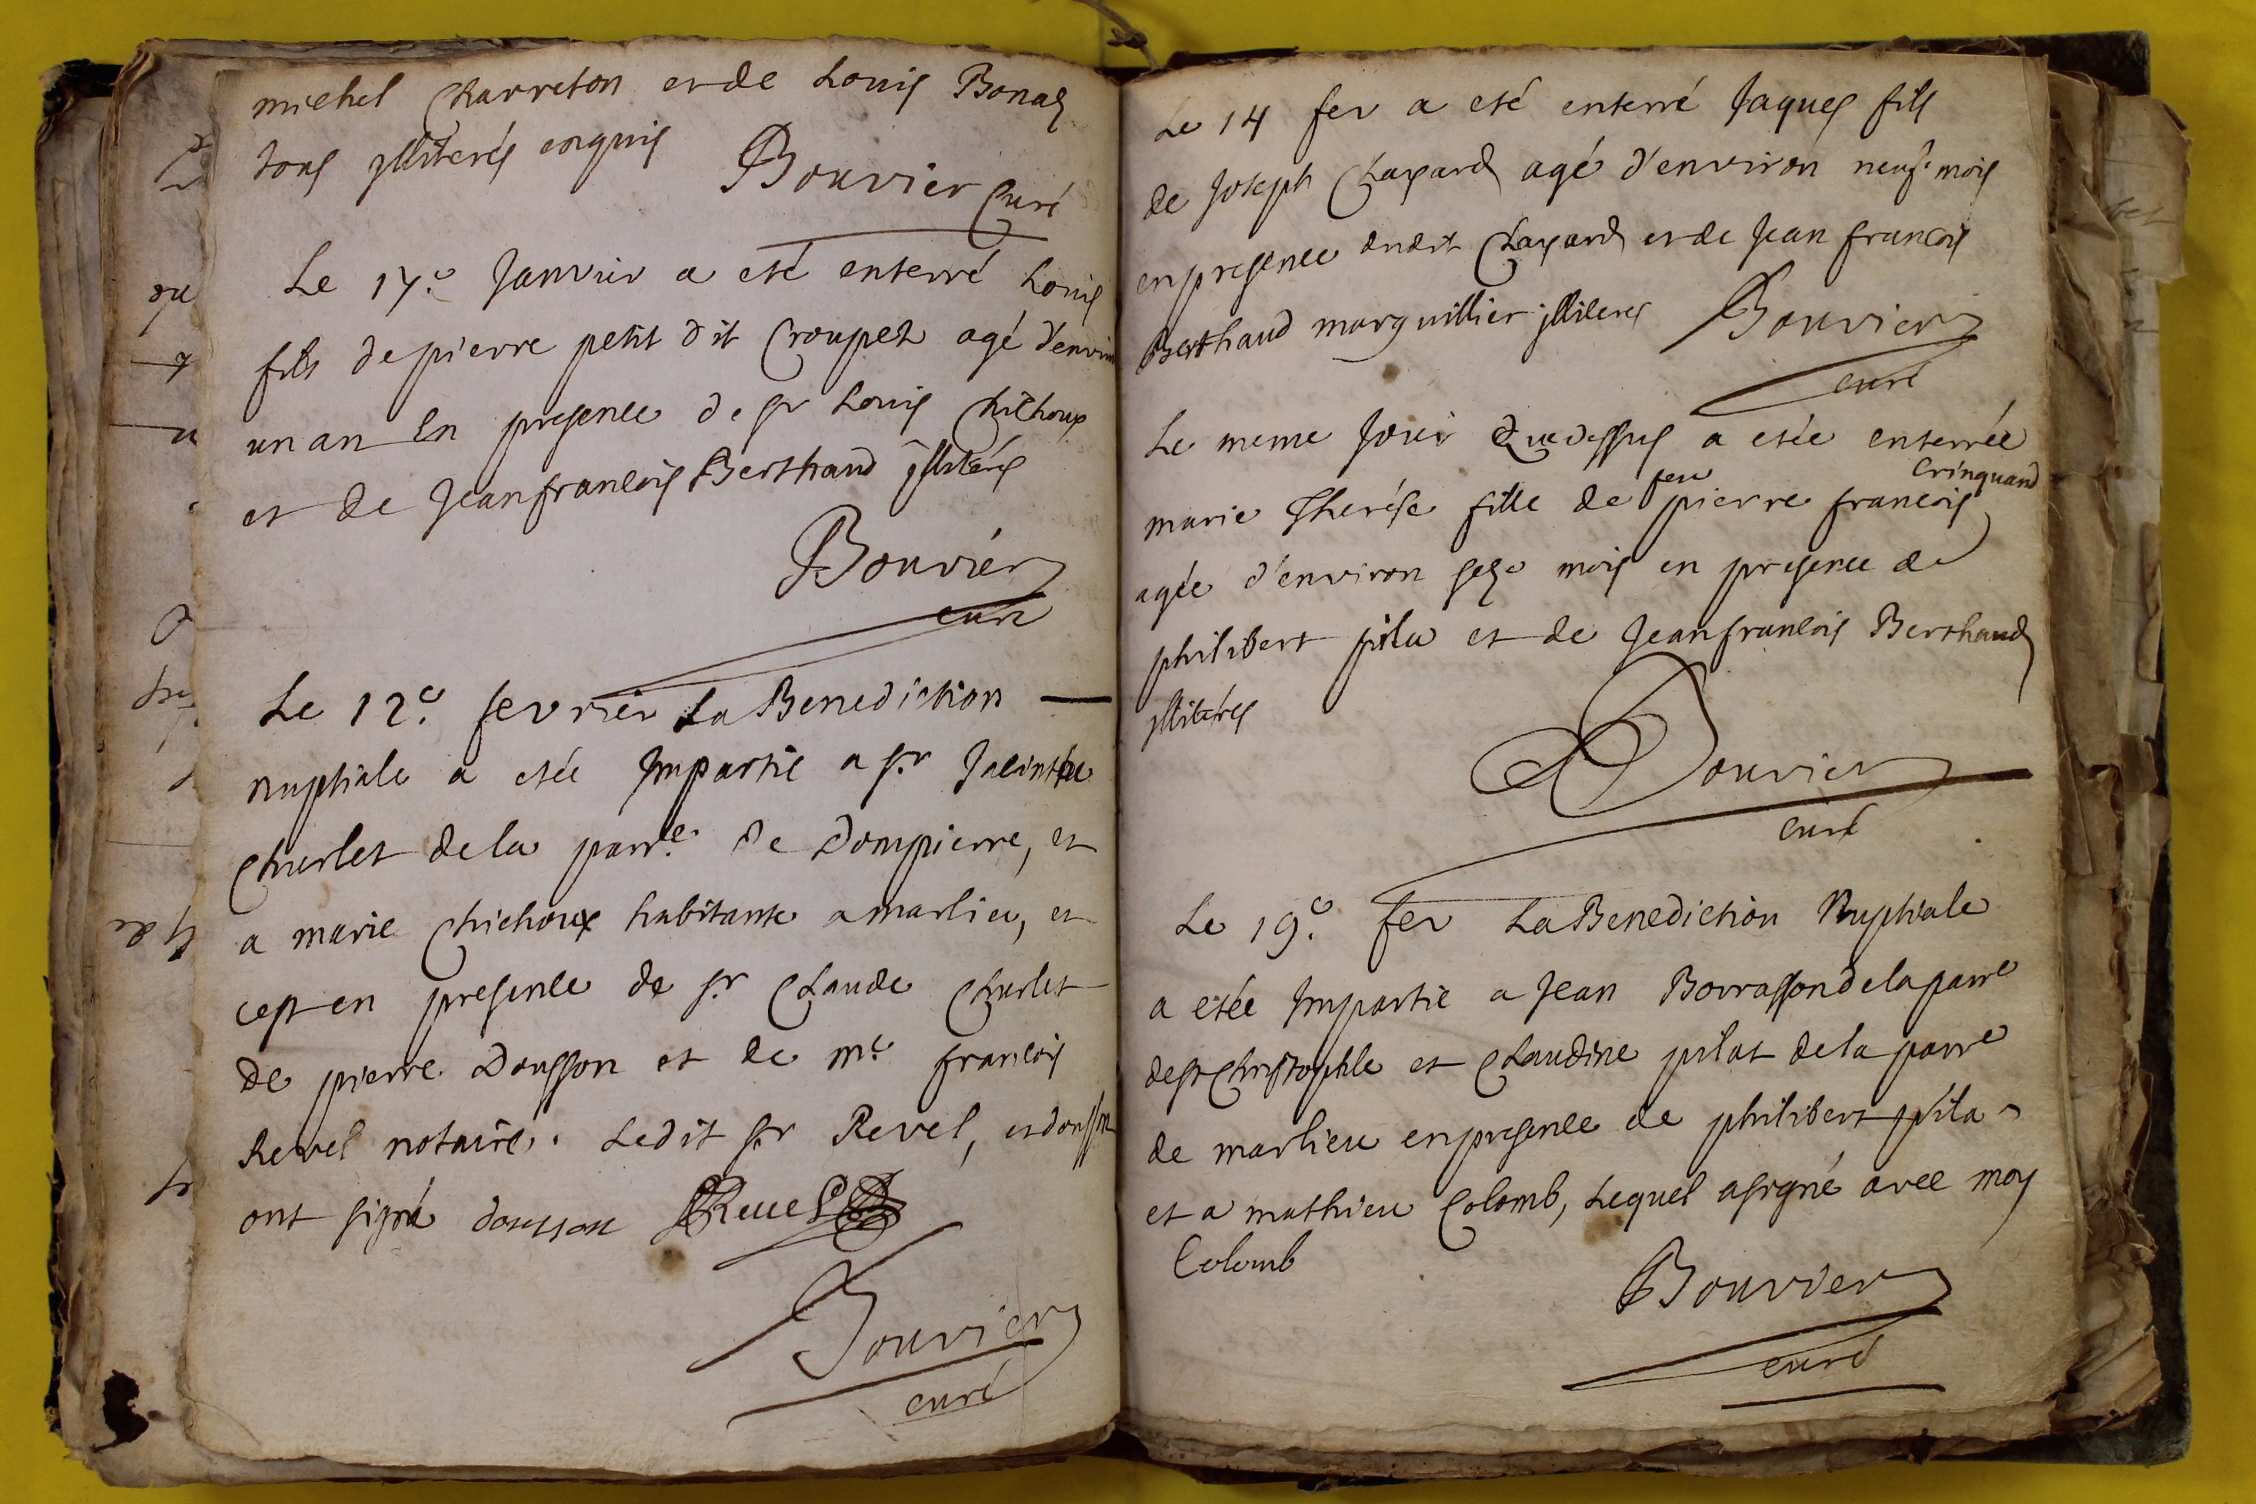 michel Charreton et de Louis Bonas
tous illiterés enquis
Bouvier Curé
Le 17.e Janvier a eté enterré Louis
fils de pierre petit dit Croupet agé d'environ
un an En presence de sr Louis Chichoux
et de Jean francois Berthaud illiterés
Bouvier
curé
Le 12.e fevrier La Benediction
nuptiale a etée Impartie a sr. Jacinthe
Churlet de la parr.e de Dompierre, et
a marie Chichoux habitante a marlieu, et
cest en presence de sr Claude Churlet
de pierre Dousson et de m.e francois
Revel notaire. Ledit sr Revel, et dousson
ont signé dousson Revel
Bouvier
curé
Le 14 fev a eté enterré Jaques fils
de Joseph Chapard agé d'environ neuf mois
en presence dudit Chapard et de Jean francois
Berthaud marguillier illiteres Bouvier
curé
Le meme Jour que dessus a etée enterrée
feu Crinquand
marie Therése fille de pierre francois
agée d'environ seze mois en presence de
philibert pila et de Jean francois Berthaud
illiterés
Bouvier
curé
Le 19.e fev La Benediction Nuptiale
a etée Impartie a Jean Borrasson de la parre
de st Christophle et Claudine pilat de la parre
de marlieu en presence de philibert pila
et a mathieu Colomb, Lequel a signé avec moy
Colomb
Bouvier
curé